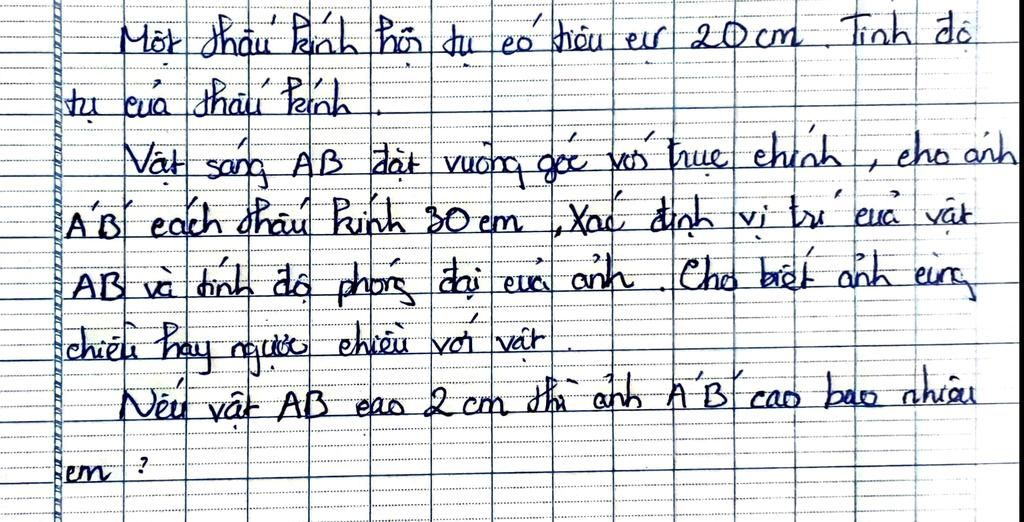 Một thấu kính hội tụ có tiêu cự 20 cm. Tính độ
tụ của thấu kính.
Vật sáng AB đặt vuông góc với trục chính, cho ảnh
A'B' cách thấu kính 30 cm, Xác định vị trí của vật
AB và tính độ phóng đại của ảnh. Cho biết ảnh cùng
chiều hay ngược chiều với vật.
Nếu vật AB cao 2 cm thì ảnh A'B' cao bao nhiêu
cm ?